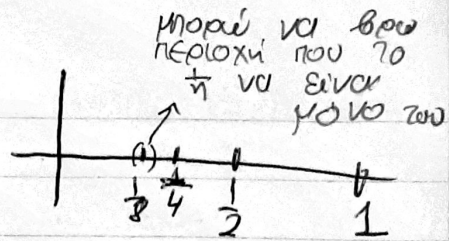 μπορώ να βρω
περιοχή που το
1/n να είναι
μόνο του
1/8 1/4 1/2 1